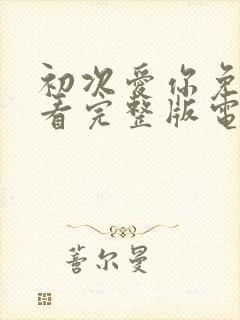 初次愛你免
看完整版電
蓍尔曼